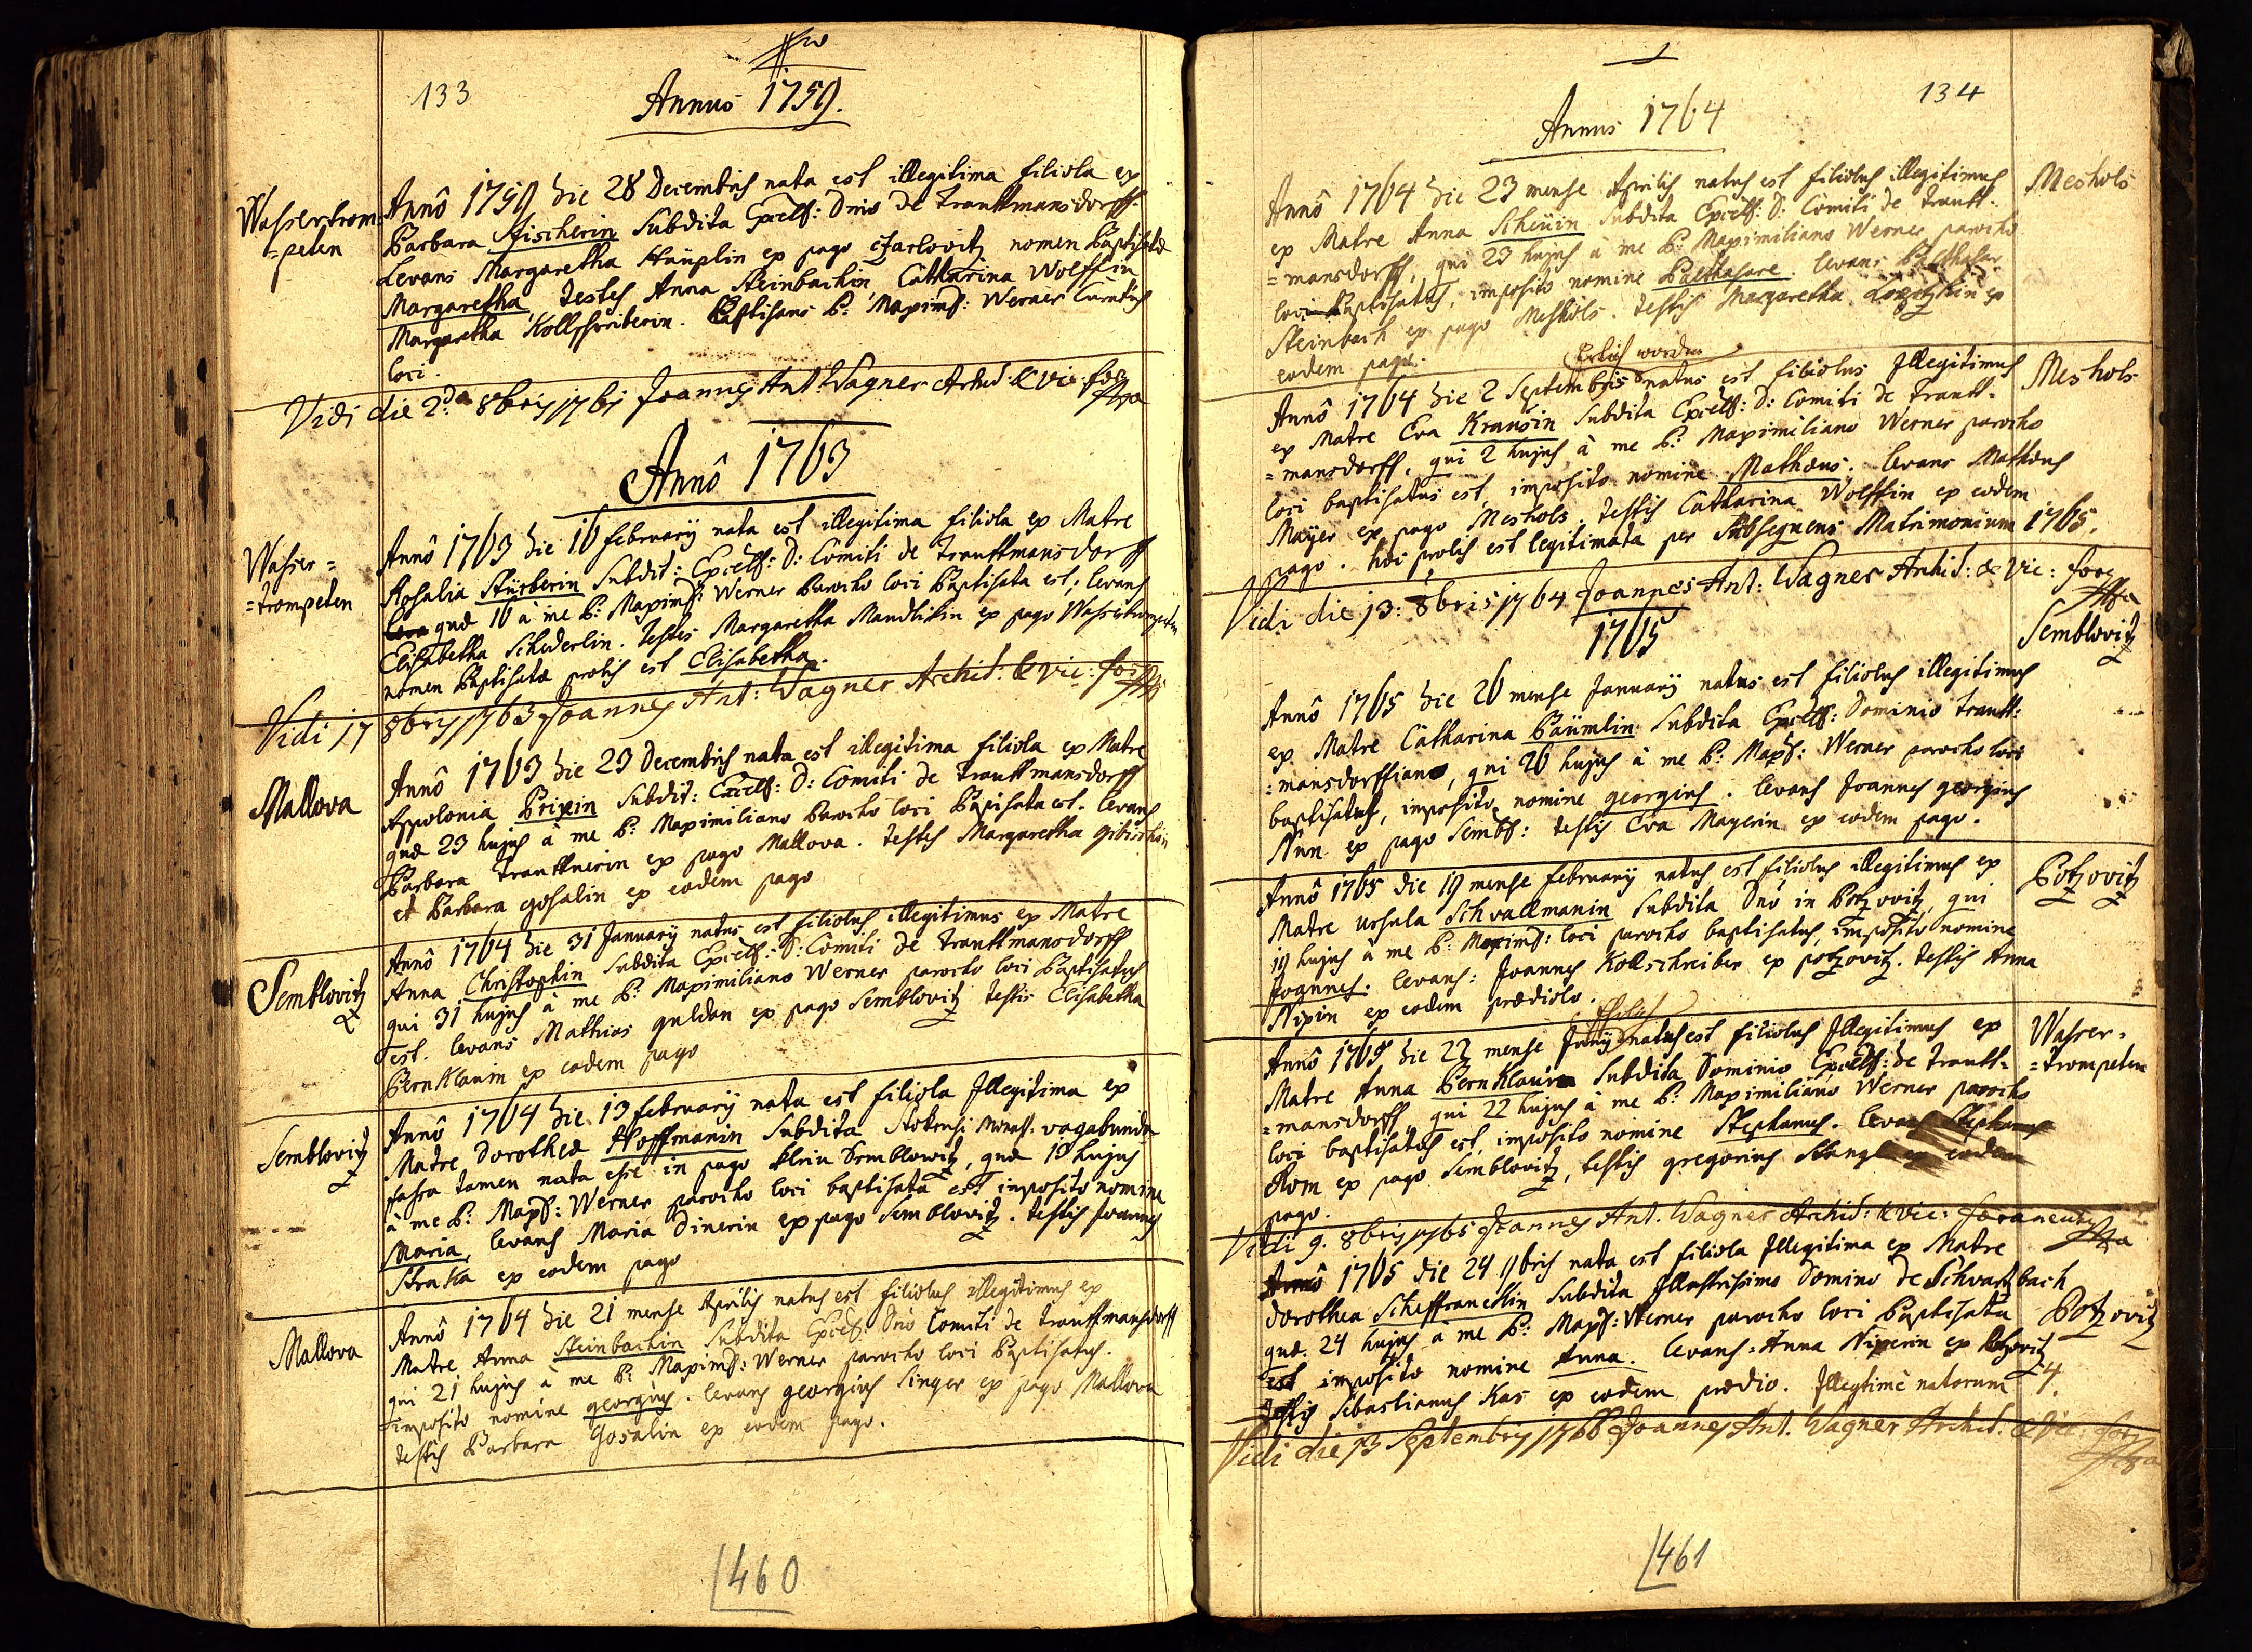 133
Annus 1759.
Wassertrom=
=peten
Annô 1759 die 28 Decembris nata est illegitima filiola ex
Barbara Fischerin Subdita Excell: Dnio de Trauttmansdorff.
Levans Margaretha Häuplin ex pago Czarlovitz nomen Baptisatæ
Margaretha, testes Anna Steinbachin Catharina Wolffin
Margaretha Kollschreiberin. Baptisans P: Maxim: Werner Curatus
loci.
Vidi die 2da 8bris 1761 Joannes Ant: Wagner Archid: & Vic: for
Annô 1763
Wasser=
=trompeten
Annô 1763 die 16 february nata est illegitima filiola ex Matre
Rosalia Stürberin Subdit: Excell: D: Comiti de Trauttmansdorff
quæ 16 à me P: Maxim: Werner Parocho loci Baptisata est, levans
Elisabetha Schederlin. Testes Margaretha Mandlikin ex pago Wassertrompeten
nomen Baptisatæ prolis est Elisabetha.
Vidi 17 8bris 1763 Joannes Ant: Wagner Archid: & vic: for
Mallova
Annô 1763 die 23 Decembris nata est illegitima filiola ex Matre
Appolonia Prixin Subdit: Excell: D: Comiti de Trauttmansdorff
quæ 23 hujus à me P: Maximiliano Parocho loci Bapisata est. levans
Barbara Trauttnerin ex pago Mallova. testes Margaretha Gibischin
et Barbara gosalin ex eodem pago
Semblovitz
Annô 1764 die 31 January natus est filiolus illegitimus ex Matre
Anna Christophin Subdita Excell: D: Comiti de Trauttmansdorff
qui 31 hujus à me P: Maximiliano Werner parocho loci Baptisatus
est. levans Mathias guldan ex pago Semblovitz testis Elisabetha
Bernklauin ex eodem pago
Semblovitz
Annô 1764 die 13 february nata est filiola Illegitima ex
Matre Dorothea Hoffmanin Subdita Stokensi Monast: vagabunda
fassa tamen nata esse in pago klein Semblowitz, quæ 13 hujus
à me P: Max: Werner parocho loci baptisata est imposito nomine
Maria, levans Maria Dinerin ex pago Semblovitz. testis Joannes
Straka ex eodem pago
Mallova
Annô 1764 die 21 mense Aprilis natus est filiolus illegitimus ex
Matre Anna Steinbachin Subdita Excel: Dnô Comiti de Trauttmansdorff
qui 21 hujus à me P: Maxim: Werner parocho loci Baptisatus.
imposito nomine georgius. levans georgius Singer ex pago Mallova
testis Barbara Gosalin ex eodem pago.
460
134
Annus 1764
Annô 1764 die 23 mense Aprilis natus est filiolus illegitimus
Meshols
ex Matre Anna Scheüin Subdita Excell: D: Comiti de Trautt:
=mansdorff, qui 23 hujus à me P: Maximiliano Werner parocho
loci Baptisatus, imposito nomine Balthasare. levans Balthasar
Steinbach ex pago Meshols. testis Margaretha ex
eodem pago.
Ehrlich worden
Annô 1764 die 2 Septembris natus est filiolus Illegitimus
Meshols
ex Matre Eva Krausin Subdita Excell: D: Comiti de Trautt=
=mansdorff, qui 2 hujus à me P: Maximiliano Werner parocho
loci baptisatus est, imposito nomine Mathæus. levans Mathæus
Mayer ex pago Meshols. testis Catharina Wolffin ex eodem
pago. hæc prolis est legitimata per Subsequens Matrimonium 1765.
Vidi die 13: 8bris 1764 Joannes Ant: Wagner Archid: & Vic: for
1765
Semblovitz
Annô 1765 die 26 mense January natus est filiolus illegitimus
ex Matre Catharina Bäumlin Subdita Excell: Dominio Trautt:
=mansdorffiano, qui 26 hujus à me P: Max: Werner parocho loci
baptisatus, imposito nomine georgius. levans Joannes georgius
Nun ex pago Sembl: testis Eva Mayerin ex eodem pago.
Annô 1765 die 19 mense february natus est filiolus illegitimus ex
Potzovitz
Matre Ursula Schvallmanin Subdita Dnô in Potzovitz, qui
19 hujus à me P: Maxim: loci parocho baptisatus, imposito nomine
Joannes. levans: Joannes Kollschreiber ex potzovitz. testis Anna
Nixin ex eodem prædiolo.
Ehrlich
Annô 1765 die 22 mense Juny natus est filiolus Illegitimus ex
Wasser=
=trompeten
Matre Anna Bernklauin Subdita Dominio Excell: de Trautt=
=mansdorff, qui 22 hujus à me P: Maximiliano Werner parocho
loci baptisatus est, imposito nomine Stephanus. levans Stephanus
Rom ex pago Semblovitz, testis gregorius Stangl ex eodem
pago.
Vidi 9. 8bris 1765 Joannes Ant. Wagner Archid: & vic: foraneus
Annô 1765 die 24 9bris nata est filiola Illegitima ex Matre
Dorothea Scheffranckin Subdita Illustrissimo Domino de Schvartzbach
Potzovitz
quæ. 24 hujus à me P: Max: Werner parocho loci Baptisata
est imposito nomine Anna. levans Anna Nixerin ex Potzovitz
testis Sebastianus Kas ex eodem prædio. Illegitimè natorum 4.
Vidi die 13 Septembris 1766 Joannes Ant. Wagner Archid: & Vic: for
461